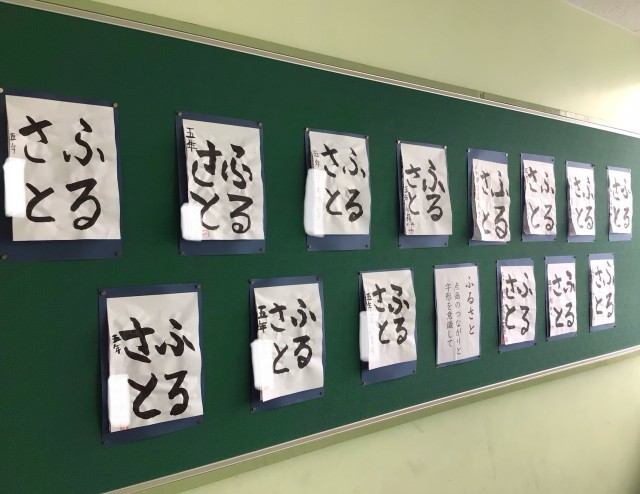 ふる
さと
五年
ふる
さと
五年
ふる
さと
五年
ふる
さと
五年
ふる
さと
ふる
さと
ふる
さと
ふる
さと
ふる
さと
五年
ふる
さと
五年
ふる
さと
五年
ふるさと
点画のつながりと
字形を意識して
ふる
さと
ふる
さと
ふる
さと